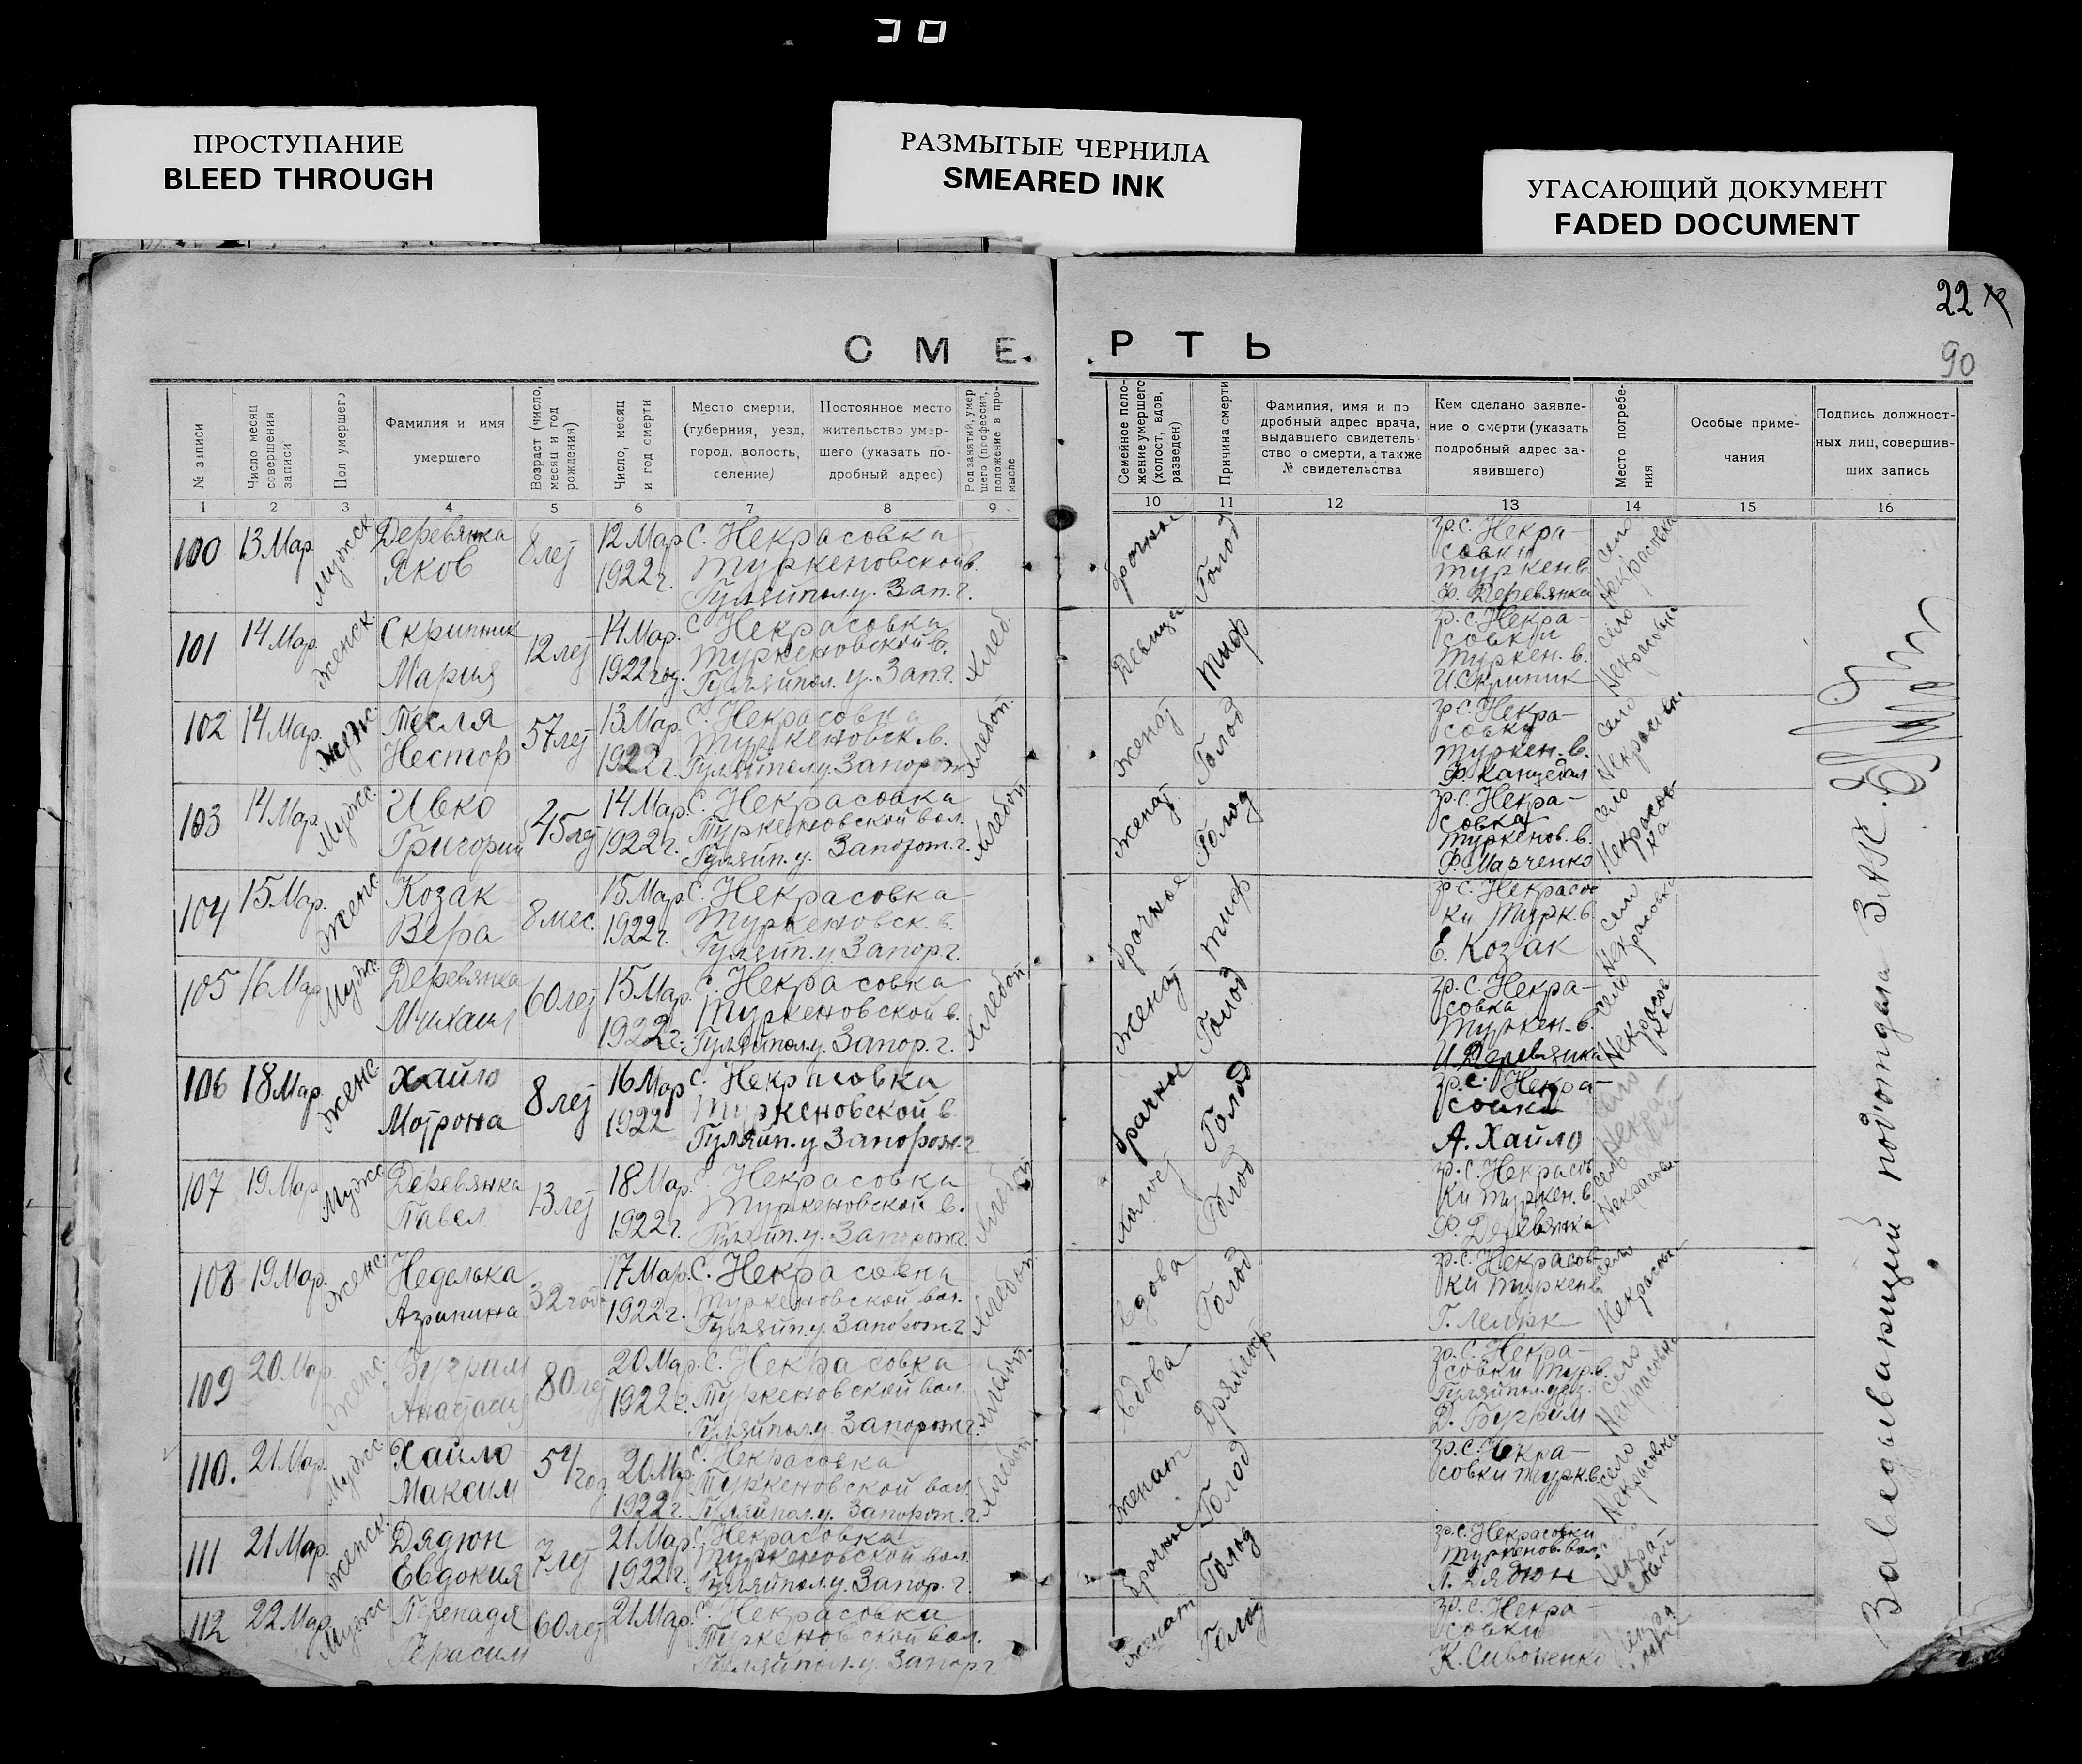 ПРОСТУПАНИЕ
BLEED THROUGH
РАЗМЫТЫЕ ЧЕРНИЛА
SMEARED INK
УГАСАЮЩИЙ ДОКУМЕНТ
FADED DOCUMENT
22
90
СМЕРТЬ
№ записи
Число месяц совершения записи
Пол умершего
Фамилия и имя умершего
Возраст (число, месяц и год рождения)
Число, месяц и год смерти
Место смерти, (губерния, уезд, город, волость, селение)
Постоянное место жительство умершего (указать подробный адрес)
Род занятий, умершего (профессия, положение в промысле
Семейное положение умершего (холост, вдов, разведен)
Причина смерти
Фамилия, имя и подробный адрес врача, выдавшего свидетельство о смерти, а также № свидетельства
Кем сделано заявление о смерти (указать подробный адрес заявившего)
Место погребения
Особые примечания
Подпись должностных лиц, совершивших запись
1 2 3 4 5 6 7 8 9 10 11 12 13 14 15 16
100 13 Мар. Мужск Деревянка Яков 8 лет 12 Мар 1922 г. С. Некрасовка Туркеновской в. Гуляйпол.у. Зап.г. Голод гр. С. Некрасовки Туркен.в. Ф. Деревянка село Некрасовка
101 14 Мар. Женск. Скрипник Мария 12 лет 14 Мар. 1922 год. С. Некрасовка Туркеновской в. Гуляйпол. у. Зап.г. Хлеб. Девица Тиф гр. С. Некрасовки Туркен. в. И. Скрипник село Некрасовка
102 14 Мар. Тесля Нестор 57 лет 13 Мар. 1922 г. С. Некрасовка Туркеновск.в. Гуляйпол.у. Запорож Хлебоп. Женат Голод гр. С. Некрасовки Туркен.в. село Некрасовка
103 14 Мар. Мужс Ивко Григорий 45 лет 14 Мар. 1922 г. С. Некрасовка Туркеновской вол. Гуляйп. у. Запорож.г. Хлебоп Женат Голод гр. С. Некрасовка Туркенов. в. Ф. Марченко село Некрасовка
104 15 Мар. Женс Козак Вера 8 мес. 15 Мар. 1922 г. С. Некрасовка Туркеновск. в. Гуляйп.у. Запор.г. Тиф гр. С. Некрасовки Турк.в Е. Козак село Некрасовка
105 16 Мар Мужс Деревянка Михаил 60 лет 15 Мар. 1922 г. С. Некрасовка Туркеновской в. Гуляйпол.у. Запор. г. Хлебоп Женат Голод гр. С. Некрасовка Туркен.в. И. Деревянка село Некрасовка
106 18 Мар. Женс Хайло Мотрона 8 лет 16 Мар 1922 С. Некрасовка Туркеновской в. Гуляйп.у Запорож.г Голод гр. С. Некрасовка А. Хайло село Некрасовка
107 19 Мар Мужс Деревянка Павел 13 лет 18 Мар. 1922 г. С. Некрасовка Туркеновской в. Гуляйп.у. Запорож.г. Хлебоп Холост Голод гр. С. Некрасовки Туркен.в. Ф. Деревянка село Некрасовка
108 19 Мар. Женс. Неделька Агрипина 32 год 17 Мар. 1922 г. С. Некрасовка Туркеновской вол. Гуляйп.у. Запорож.г. Хлебоп. Вдова Голод гр. С. Некрасовки Туркен.в. село Некрасовка
109 20 Мар. Женс. Бугрим Анастасия 80 лет 20 Мар. 1922 г. С. Некрасовка Туркеновской вол. Гуляйпол.у Запорож.г. Хлебоп. Вдова Дряхлость гр. С. Некрасовки Тур.в. Гуляйпол.уез. Д. Бугрим село Некрасовка
110. 21 Мар. Мужс Хайло Максим 54 год 20 Мар 1922 г. С. Некрасовка Туркеновской вол. Гуляйпол.у. Запорож.г. Хлебоп. Женат Голод гр. С. Некрасовки Турк.в. село Некрасовка
111 21 Мар. Женск. Дядюн Евдокия 7 лет 21 Мар. 1922 г. С. Некрасовка Туркеновской вол. Гуляйпол.у. Запор. г. Голод гр. С. Некрасовки Туркенов.вол. П. Дядюн Некрасовка
112 22 Мар. Мужс Перепадя Герасим 60 лет 21 Мар. С. Некрасовка Туркеновской вол. Гуляйпол.у. Запор г Женат Голод гр. С. Некрасовки К. Сивоненко
Заведывающий под'отдела ЗАГС.